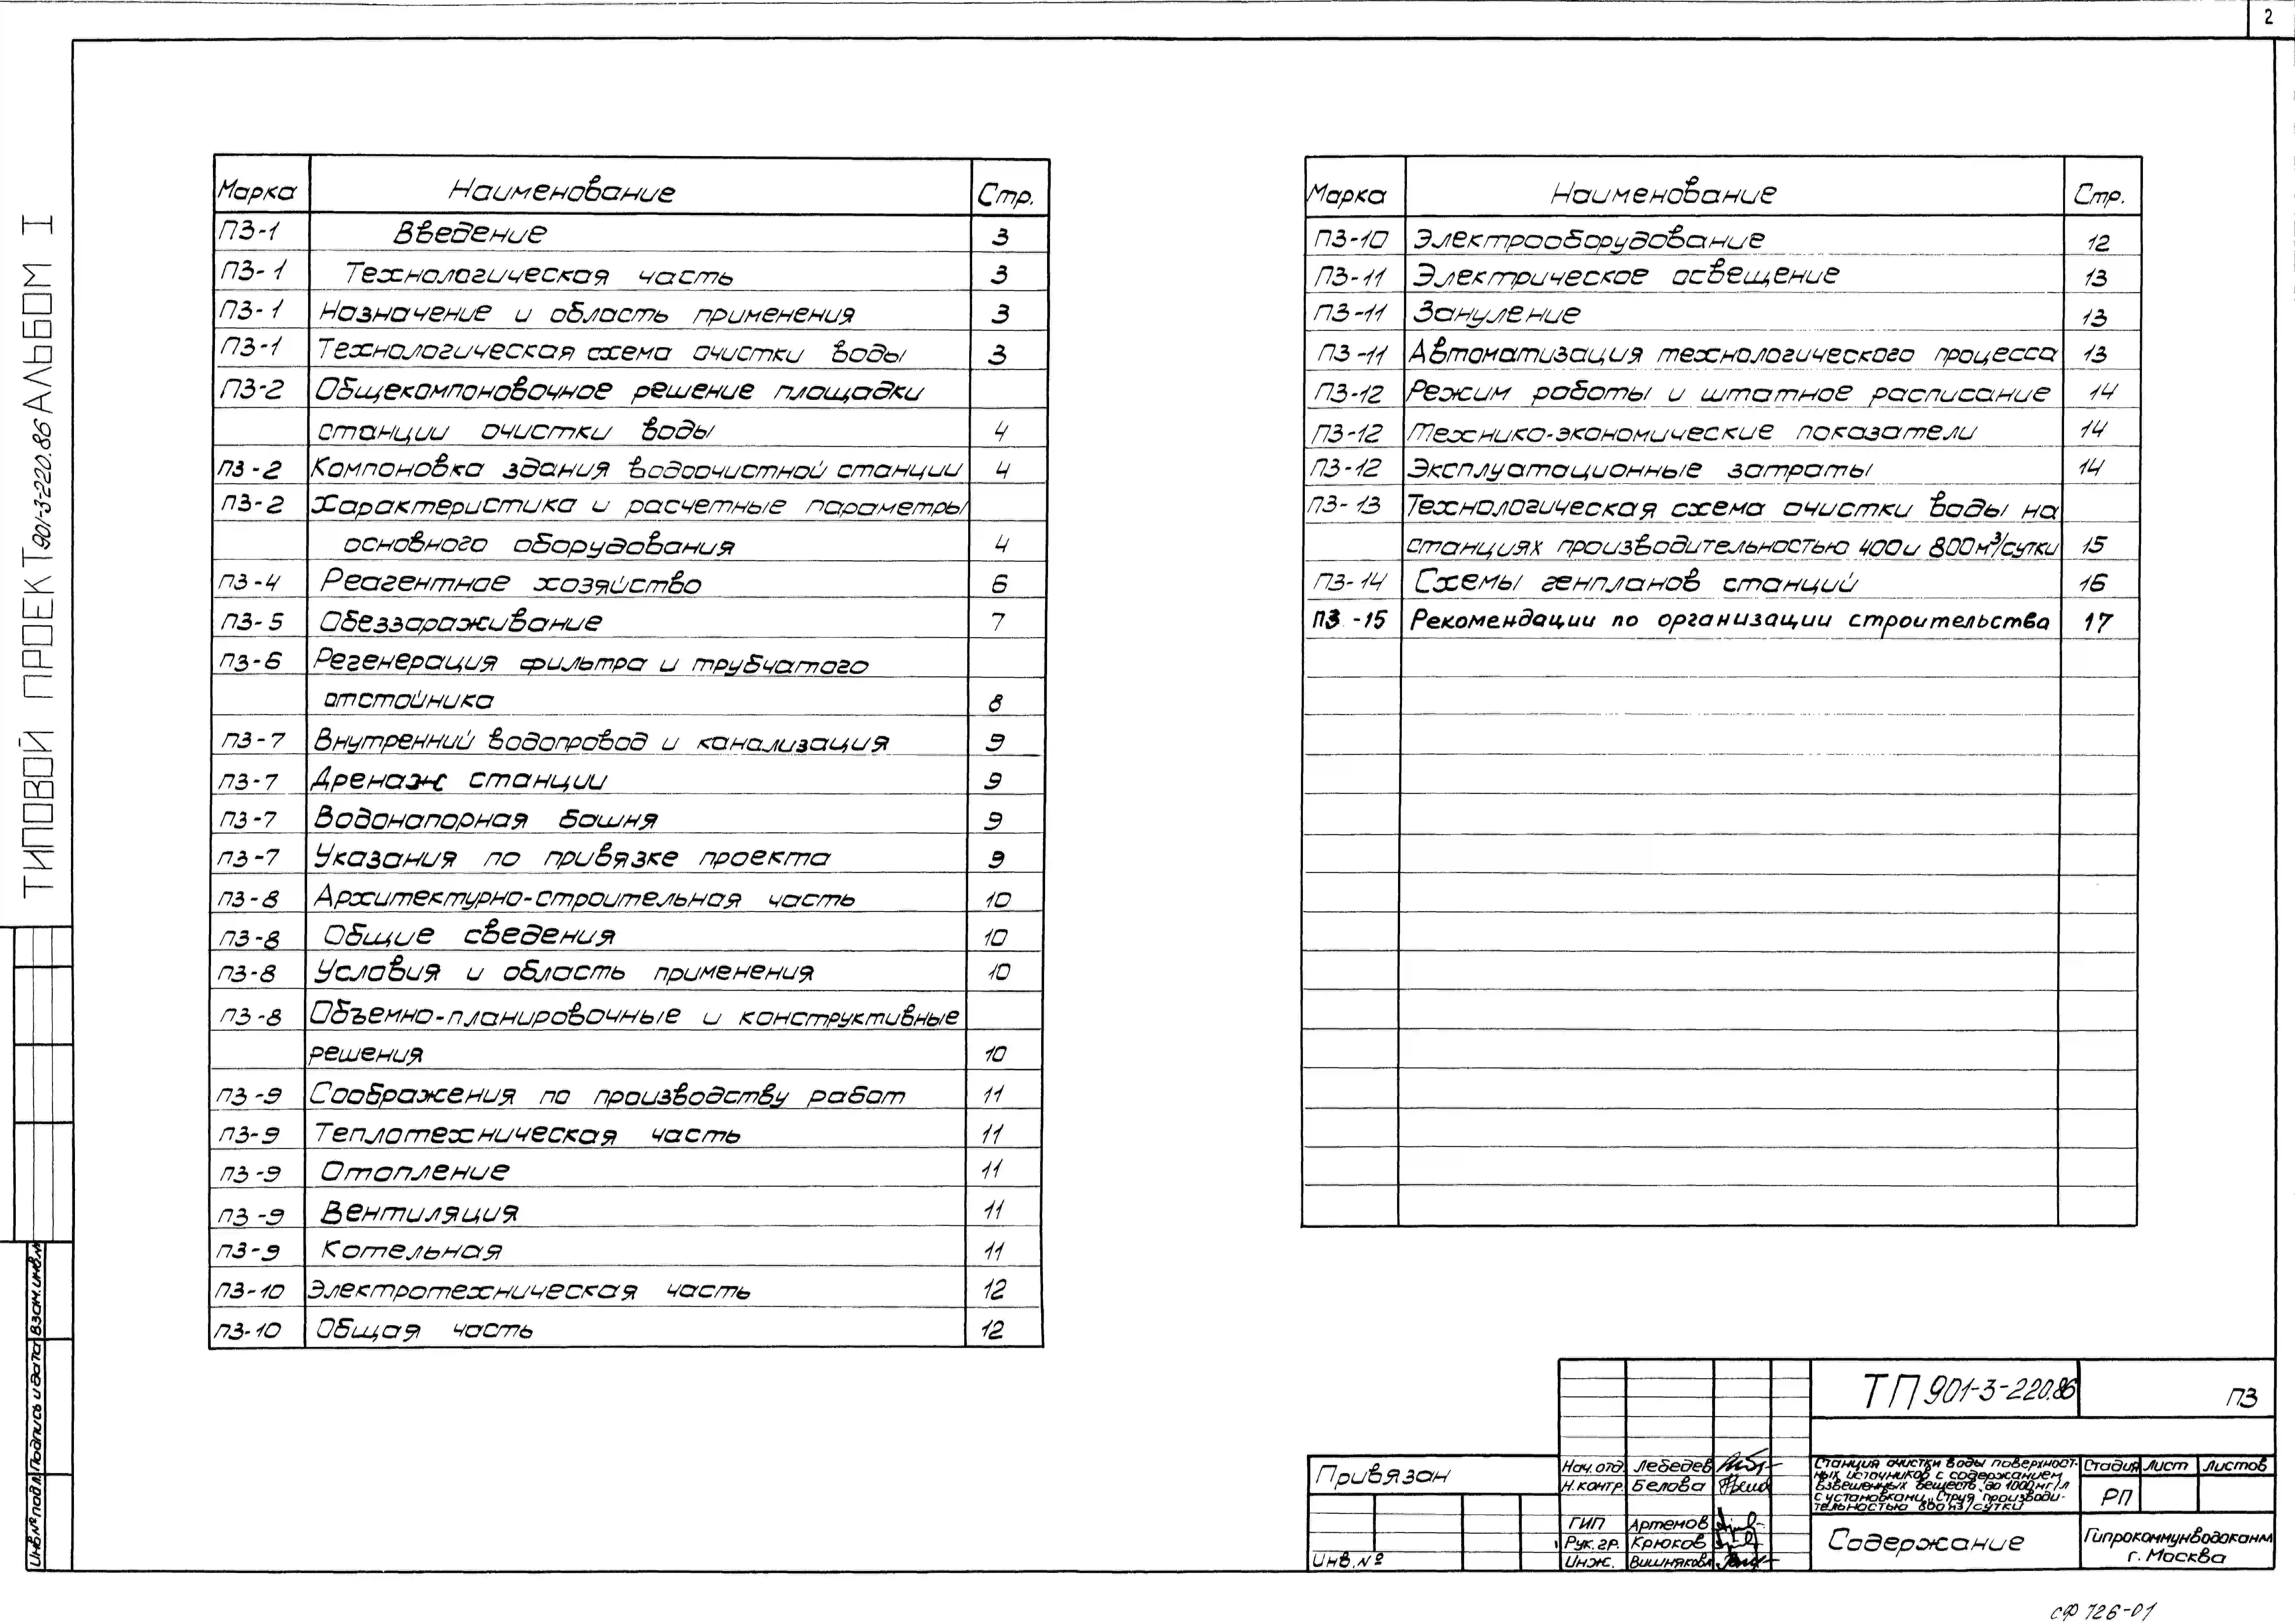 2
ТИПОВОЙ ПРОЕКТ 901-3-220.86 АЛЬБОМ I
Марка Наименование Стр.
ПЗ-1 Введение 3
ПЗ-1 Технологическая часть 3
ПЗ-1 Назначение и область применения 3
ПЗ-1 Технологическая схема очистки воды 3
ПЗ-2 Общекомпоновочное решение площадки
станции очистки воды 4
ПЗ-2 Компоновка здания водоочистной станции 4
ПЗ-2 Характеристика и расчетные параметры
основного оборудования 4
ПЗ-4 Реагентное хозяйство 6
ПЗ-5 Обеззараживание 7
ПЗ-6 Регенерация фильтра и трубчатого
отстойника 8
ПЗ-7 Внутренний водопровод и канализация 9
ПЗ-7 Дренаж станции 9
ПЗ-7 Водонапорная башня 9
ПЗ-7 Указания по привязке проекта 9
ПЗ-8 Архитектурно-строительная часть 10
ПЗ-8 Общие сведения 10
ПЗ-8 Условия и область применения 10
ПЗ-8 Объемно-планировочные и конструктивные
решения 10
ПЗ-9 Соображения по производству работ 11
ПЗ-9 Теплотехническая часть 11
ПЗ-9 Отопление 11
ПЗ-9 Вентиляция 11
ПЗ-9 Котельная 11
ПЗ-10 Электротехническая часть 12
ПЗ-10 Общая часть 12
Марка Наименование Стр.
ПЗ-10 Электрооборудование 12
ПЗ-11 Электрическое освещение 13
ПЗ-11 Зануление 13
ПЗ-11 Автоматизация технологического процесса 13
ПЗ-12 Режим работы и штатное расписание 14
ПЗ-12 Технико-экономические показатели 14
ПЗ-12 Эксплуатационные затраты 14
ПЗ-13 Технологическая схема очистки воды на
станциях производительностью 400 и 800 м³/сутки 15
ПЗ-14 Схемы генпланов станций 16
ПЗ-15 Рекомендации по организации строительства 17
Инв.№ подл. Подпись и дата Взам.инв.№
Привязан
Инв.№
Нач.отд. Лебедев
Н.контр. Белова
ГИП Артемов
Рук.гр. Крюков
Инж. Вишнякова
ТП 901-3-220.86 ПЗ
Станция очистки воды поверхност-
ных источников с содержанием
взвешенных веществ до 1000 мг/л
с установками „Струя" производи-
тельностью 800 м3/сутки
Стадия Лист Листов
РП
Содержание
Гипрокоммунводоканал
г. Москва
сф 726-01